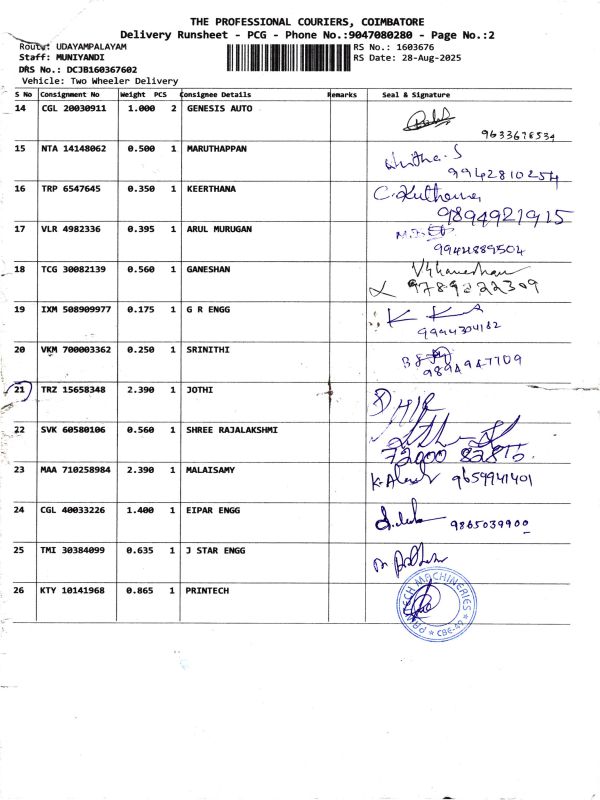 THE PROFESSIONAL COURIERS, COIMBATORE
Delivery Runsheet - PCG - Phone No.:9047080280 - Page No.:2
Route: UDAYAMPALAYAM
RS No.: 1603676
Staff: MUNIYANDI
RS Date: 28-Aug-2025
DRS No.: DCJB160367602
Vehicle: Two Wheeler Delivery
S No Consignment No Weight PCS Consignee Details Remarks Seal & Signature
14 CGL 20030911 1.000 2 GENESIS AUTO
9633678534
15 NTA 14148062 0.500 1 MARUTHAPPAN
9942810254
16 TRP 6547645 0.350 1 KEERTHANA
9894921915
17 VLR 4982336 0.395 1 ARUL MURUGAN
9944889504
18 TCG 30082139 0.560 1 GANESHAN
9789222309
19 IXM 508909977 0.175 1 G R ENGG
9944304182
20 VKM 700003362 0.250 1 SRINITHI
9894947709
21 TRZ 15658348 2.390 1 JOTHI
22 SVK 60580106 0.560 1 SHREE RAJALAKSHMI
72000 82815
23 MAA 710258984 2.390 1 MALAISAMY
9659941401
24 CGL 40033226 1.400 1 EIPAR ENGG
9865039900
25 TMI 30384099 0.635 1 J STAR ENGG
26 KTY 10141968 0.865 1 PRINTECH
PRINTECH MACHINERIES
* CBE-49 *